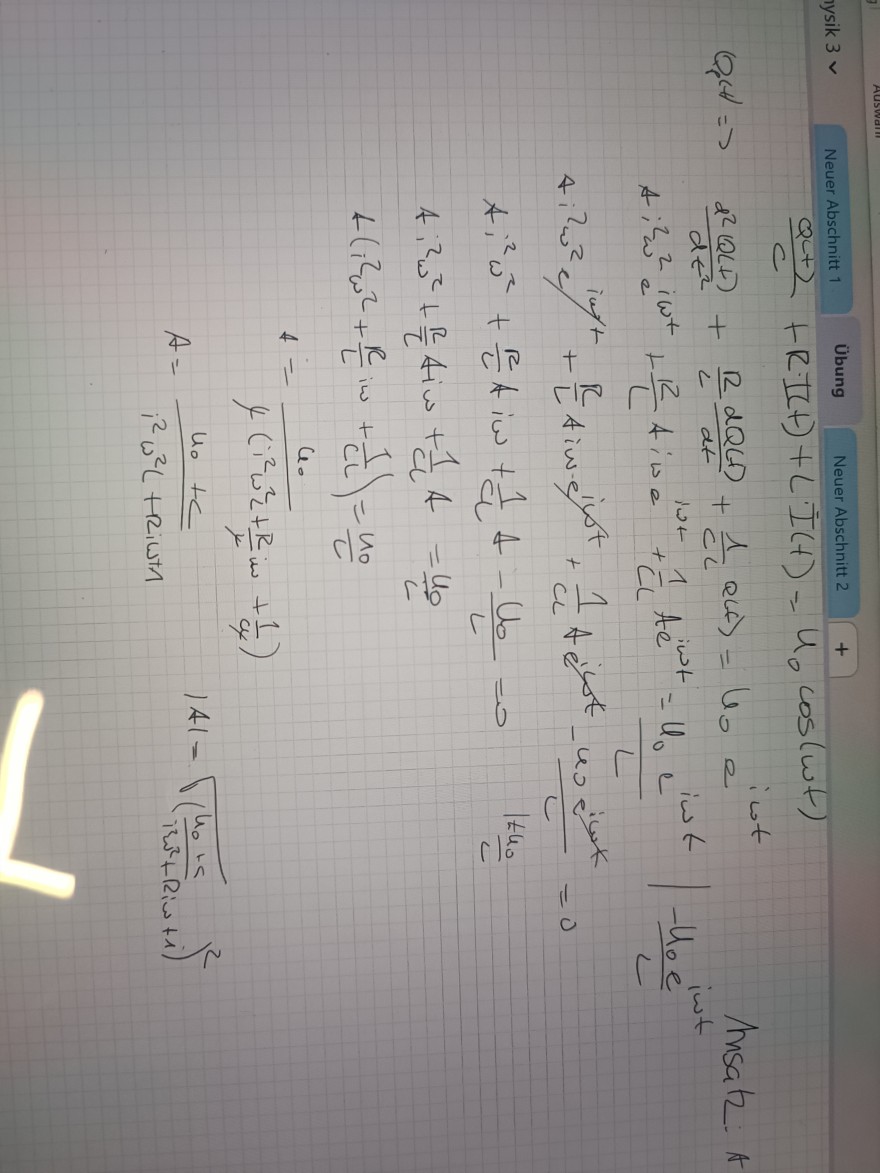 Auswahl
Physik 3
Neuer Abschnitt 1 Übung Neuer Abschnitt 2 +
Q(t)/C + R·I(t) + L·İ(t) = U₀ cos(ωt)
Q(t) => d²Q(t)/dt² + R/L dQ(t)/dt + 1/CL Q(t) = U₀ e^iωt Ansatz: A
A i²ω² e^iωt + R/L A iω e^iωt + 1/CL A e^iωt = U₀/L e^iωt | -U₀ e^iωt/L
A i²ω² e^iωt + R/L A iω·e^iωt + 1/CL A e^iωt - U₀ e^iωt/L = 0
A i²ω² + R/L A iω + 1/CL A - U₀/L = 0 |+U₀/L
A i²ω² + R/L A iω + 1/CL A = U₀/L
A (i²ω² + R/L iω + 1/CL) = U₀/L
A = U₀ / L (i²ω² + R/L iω + 1/CL)
A = U₀ + C / i²ω²L + Riω+1
|A| = √(U₀ + C / i²ω² + Riω + 1)²